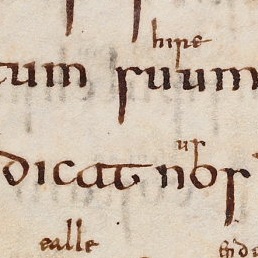 hire
tum suum
us
dicat nobis
ealle